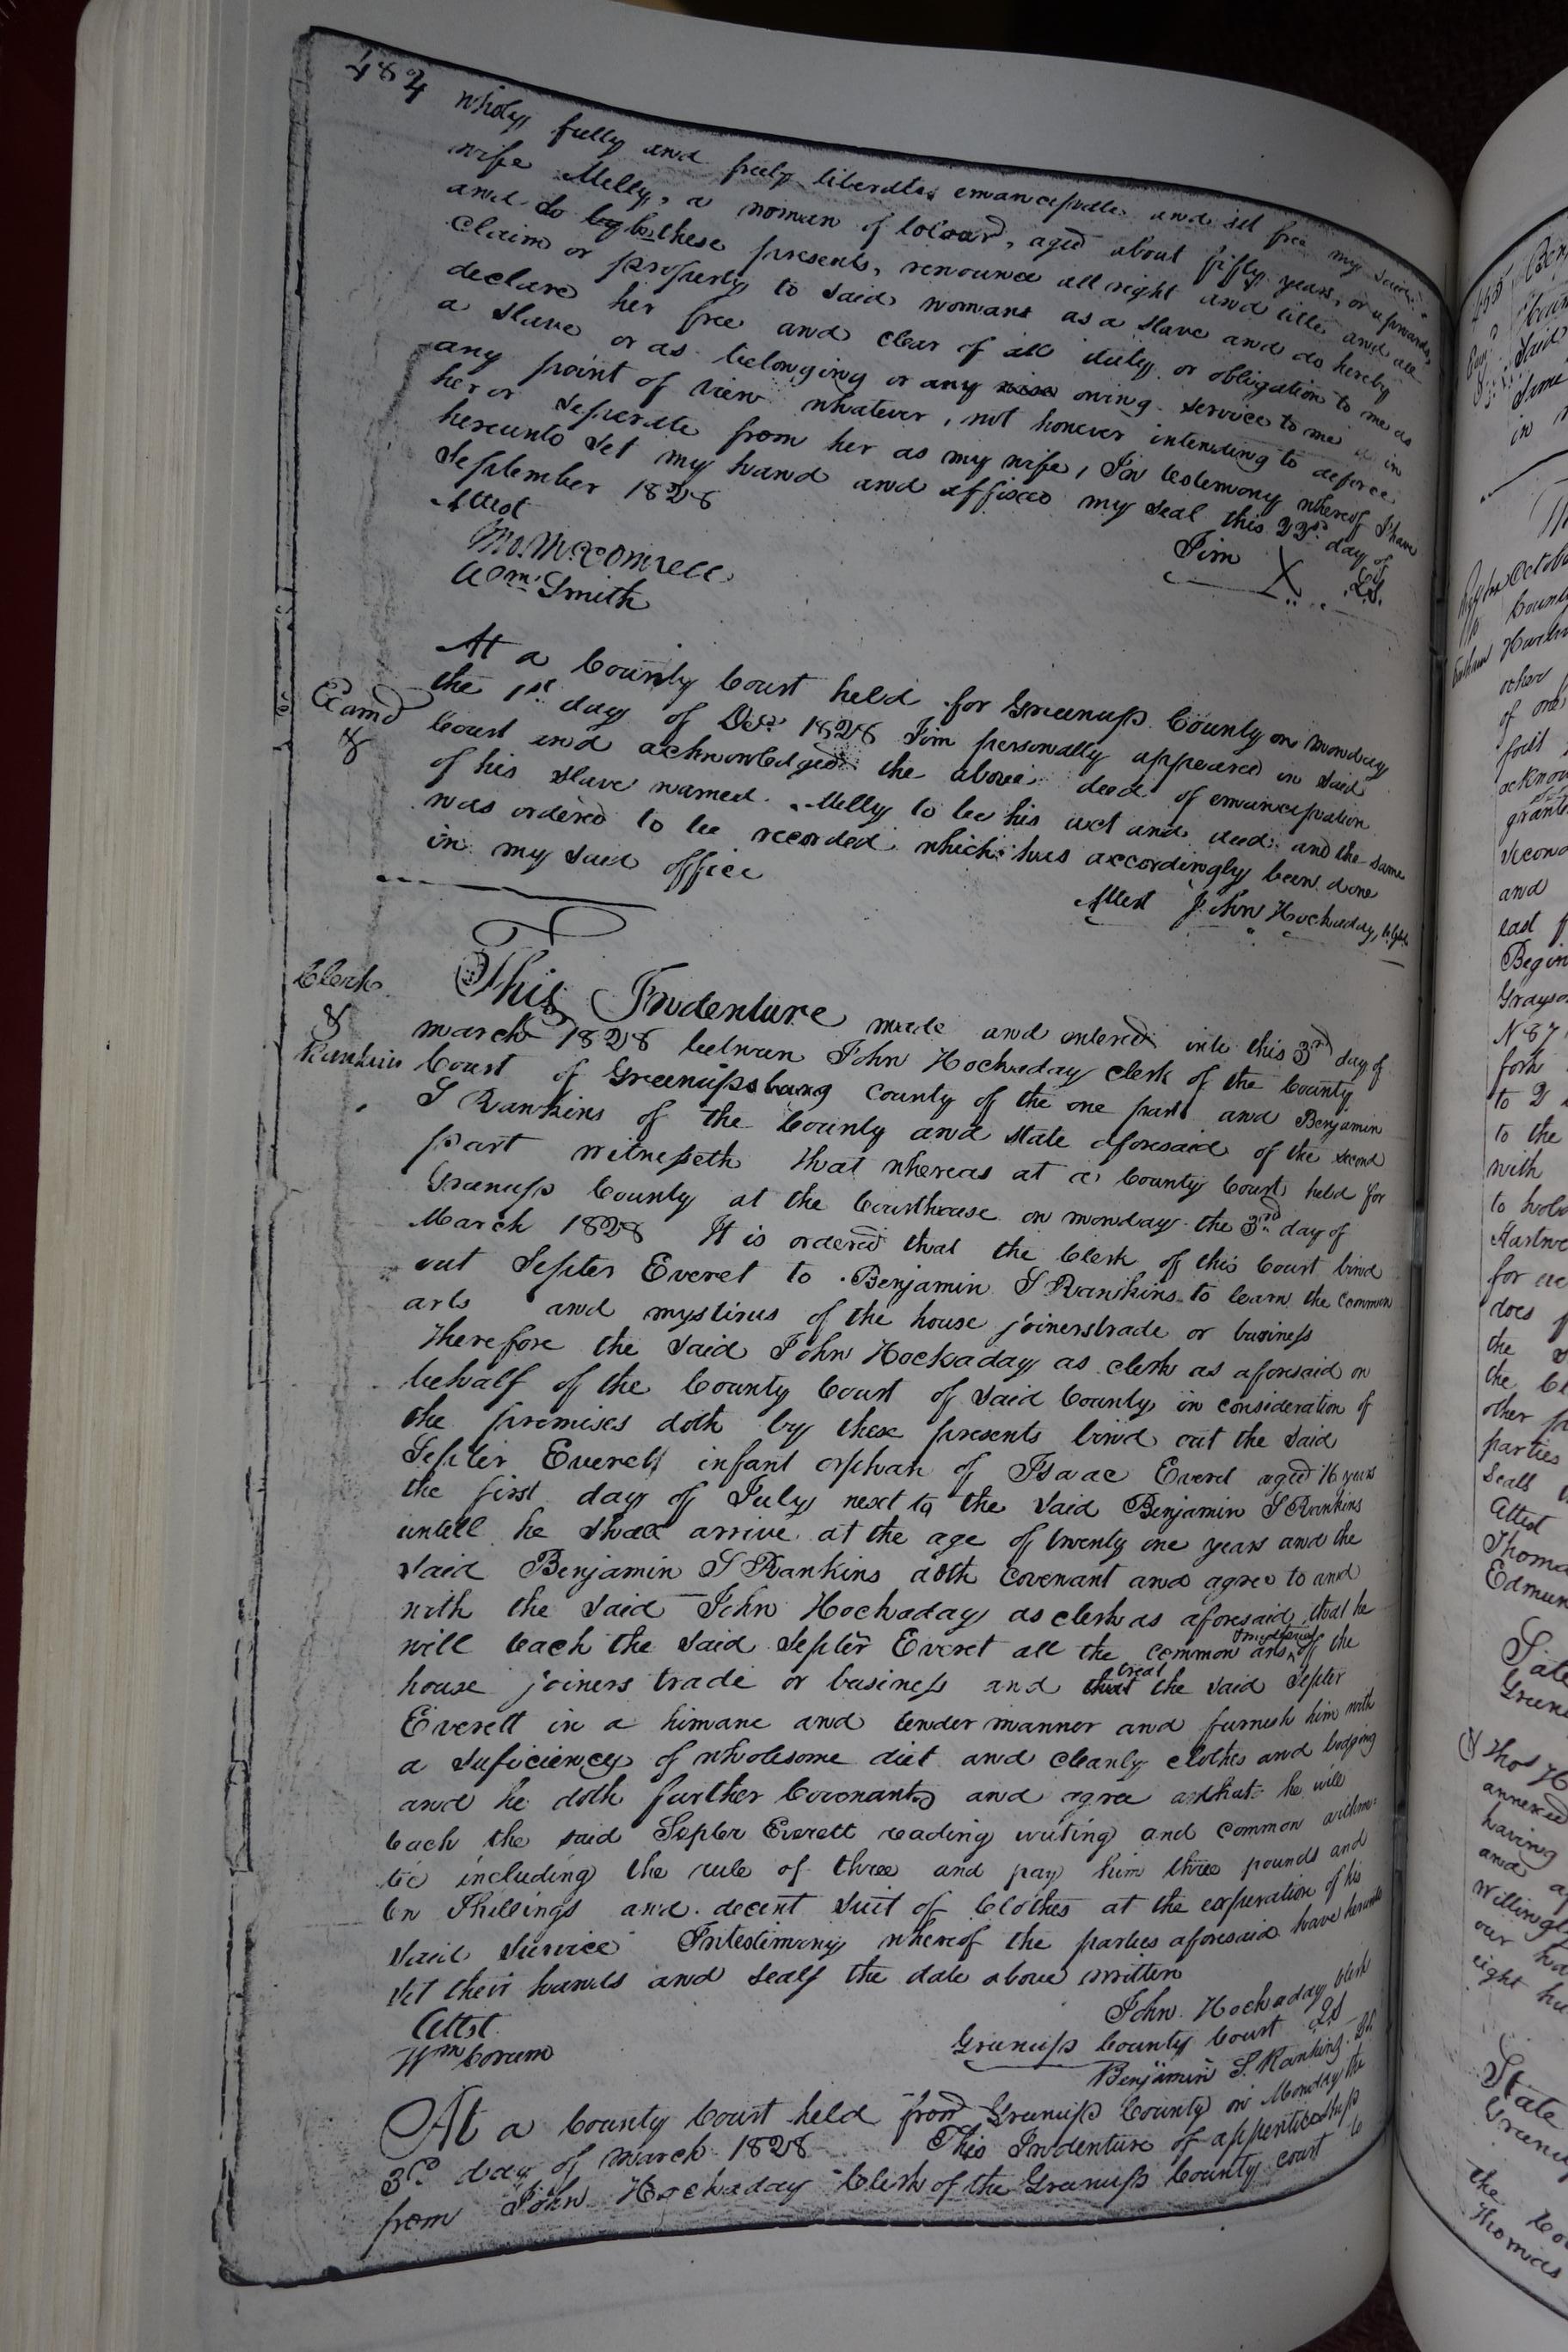 484
wholy, fully and freely liberates emancipates and set free my said
wife Milly, a woman of colour, aged about fifty years, or upwards,
and do by these presents, renounce all right and title and all
claim or property to said womans as a slave and do hereby
declare her free and clear of all duty or obligation to me as
a slave or as belonging or any owing service to me in
any point of view whatever, not however intending to deforce
her or seperate from her as my wife, In testemony whereof I have
hereunto set my hand and affixed my seal this 22nd day of
September 1828
Attest
Jim X L.S.
Wm. Smith
At a County Court held for Greenup County on monday
the 1st day of Decr 1828 Jim personally appeared in said
Eamd
&
Court and acknowledged the above deed of emancipation
of his slave named Milly to be his act and deed and the same
was ordered to be recorded which has accordingly been done
in my said office
Attest John Hockaday,
Clerk
&
Rankins
This Indenture made and entered into this 3rd day of
march 1828 between John Hockaday clerk of the County
Court of Greenupsburg County of the one part and Benjamin
S Rankins of the County and State aforesaid of the second
part witnesseth that whereas at a County Court held for
Greenup County at the Courthouse on monday the 3rd day of
March 1828 It is ordered that the Clerk of this Court bind
out Septer Everet to Benjamin S Rankins to learn the common
arts and mystirus of the house joinerstrade or business
Therefore the said John Hockaday as clerk as aforesaid on
behalf of the County Court of said County in consideration of
the premises doth by these presents bind out the said
Septer Everett infant orphan of Isaac Everet aged 16 years
the first day of July next to the said Benjamin S Rankins
untill he shall arrive at the age of twenty one years and the
said Benjamin S Rankins doth covenant and agree to and
with the said John Hockaday as clerk as aforesaid that he
will teach the said Sepler Everet all the common arts mysteries of the
house joiners trade or business and treat the said Sepler
Everett in a himane and tender manner and furnish him with
a suficiency of wholesome diet and cleanly clothes and lodging
and he doth further Covenant and agree that he will
teach the said Sepler Everett reading writing and common arithme-
tic including the rule of three and pay him three pounds and
ten Shillings and decent suit of Clothes at the experation of his
said service Intestimony whereof the parties aforesaid have hereunto
set their hands and seals the date above written
Attst
John Hockaday Clerk
Wm Corum
Greenup County Court LS
Benjamin S. Rankins LS.
At a County Court held from Greenup County on Monday the
3rd day of march 1828 This Indenture of apprenticeship
from John Hockaday Clerk of the Greenup County court to